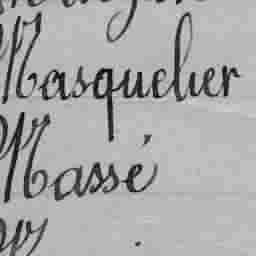 Masquelier
Massé